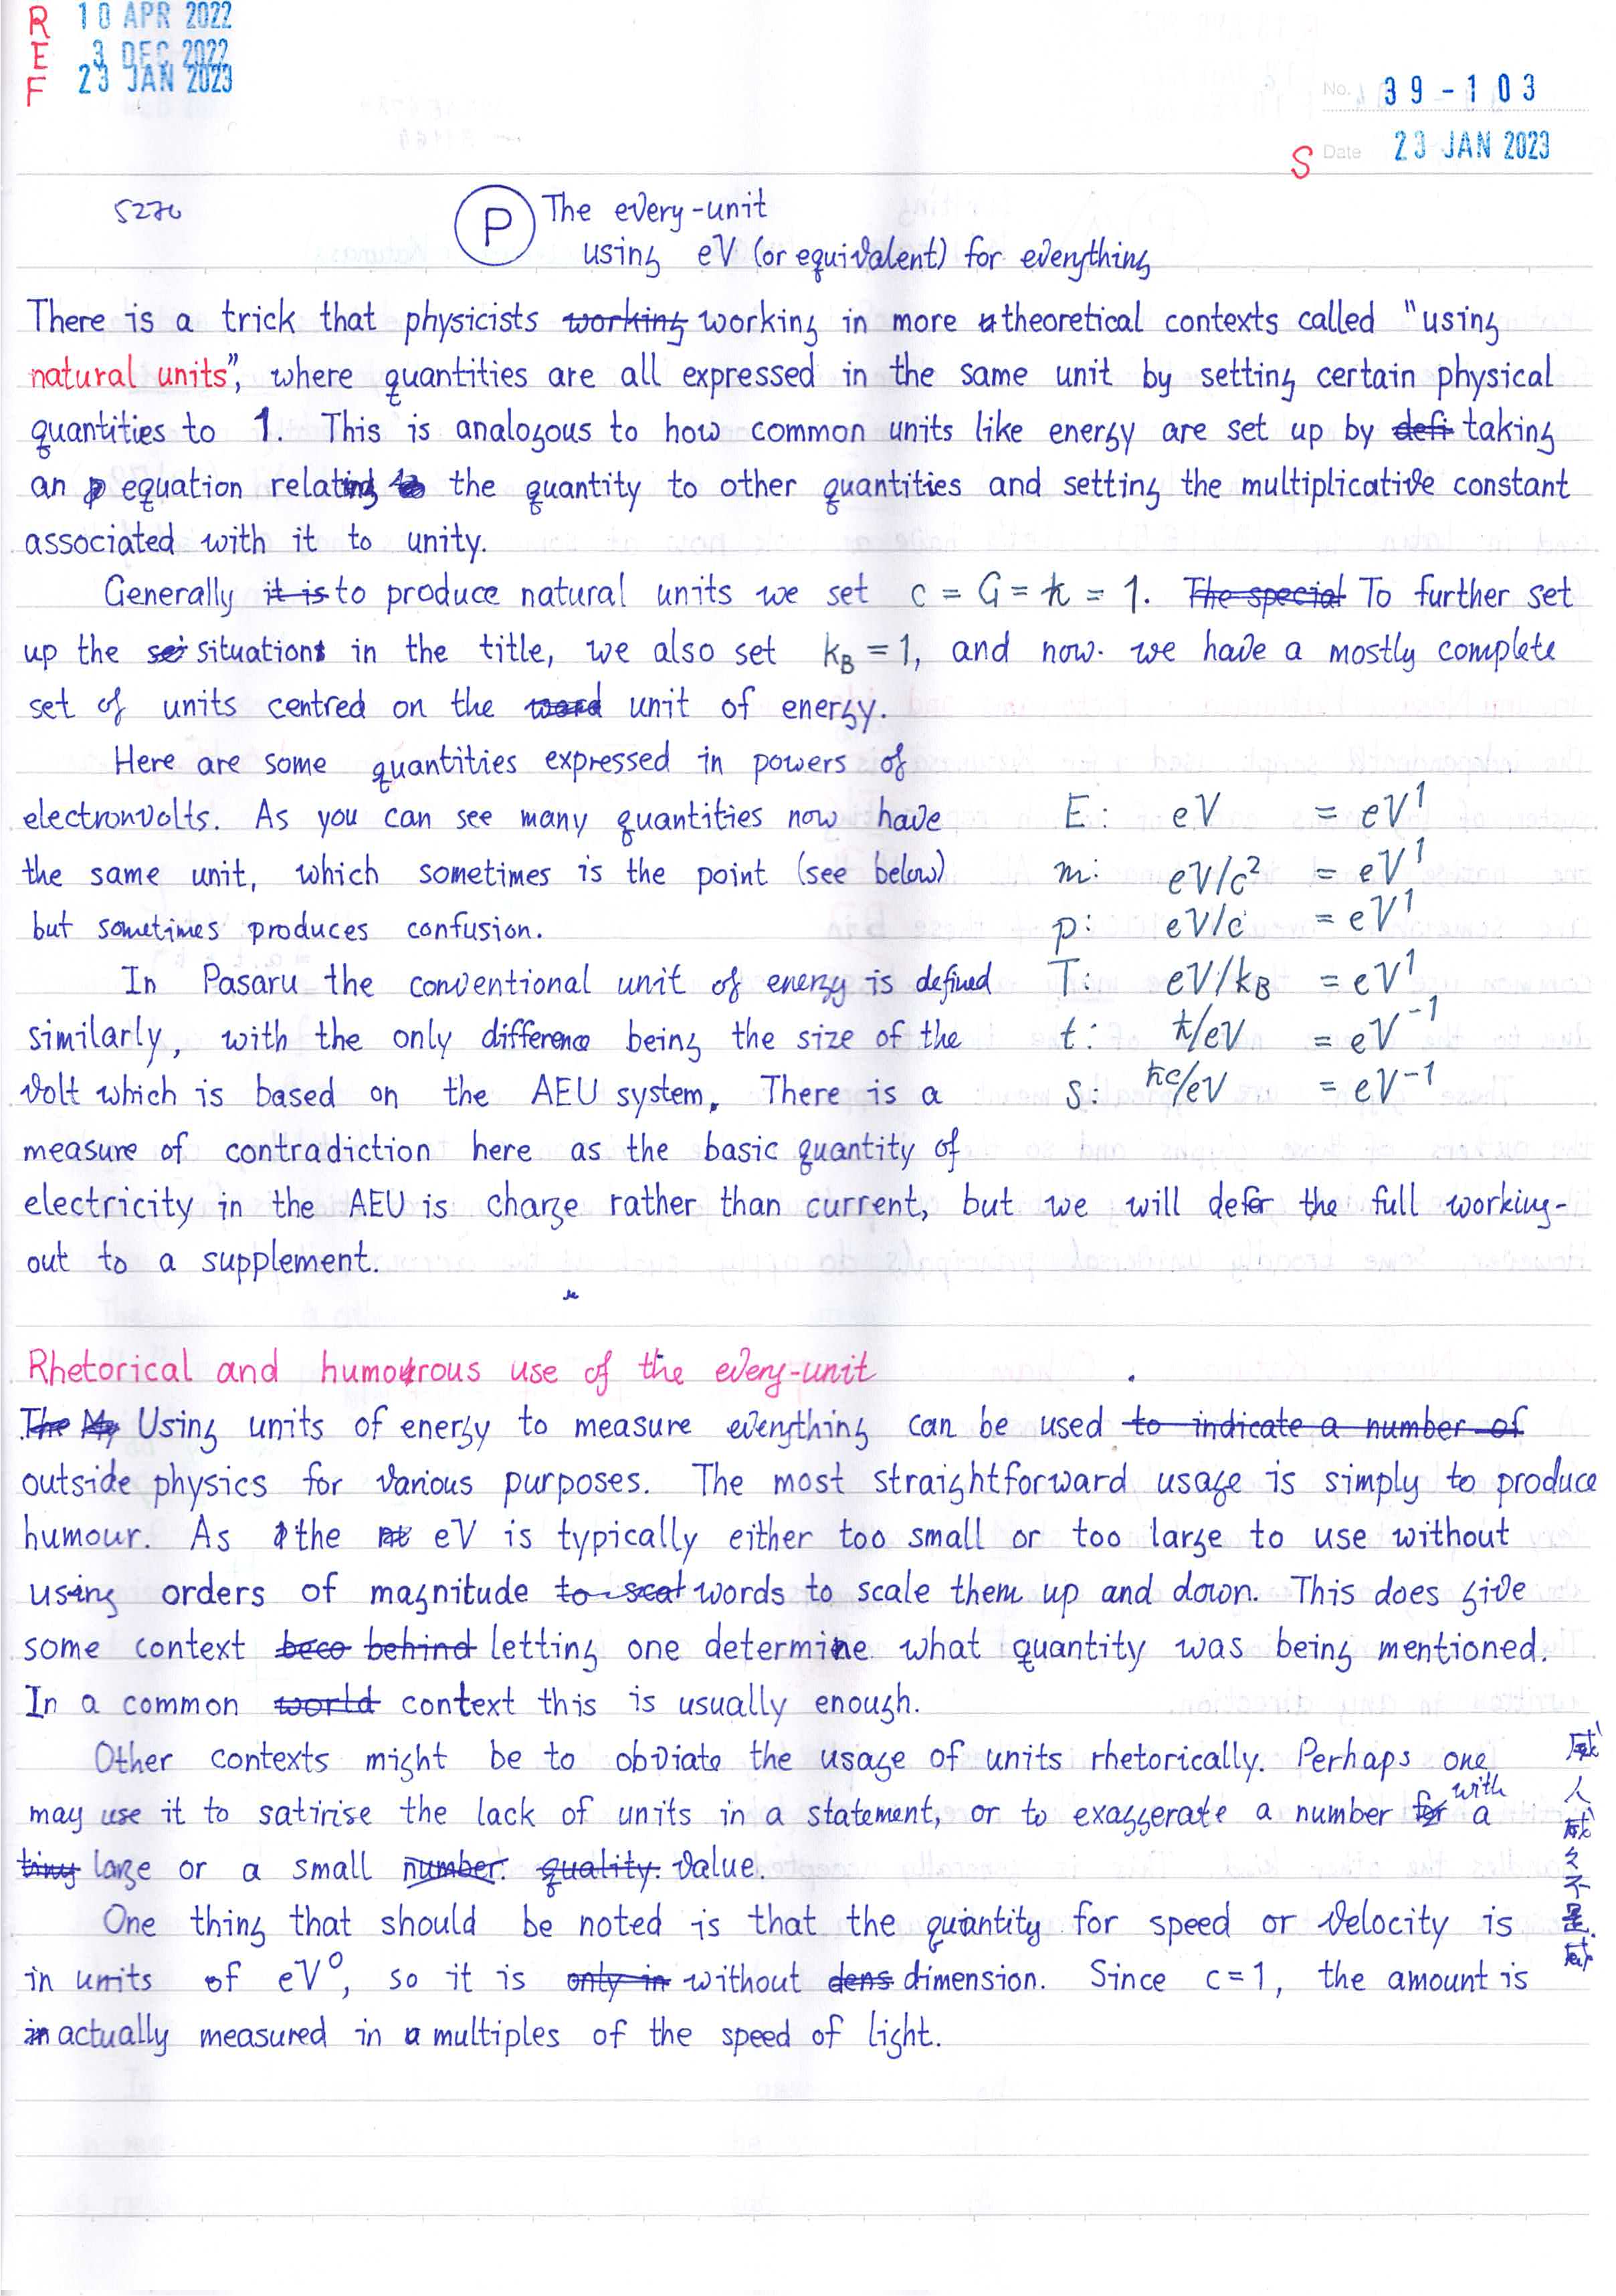 R 10 APR 2022
E 3 DEC 2022
F 23 JAN 2023
No. 39-103
S Date 23 JAN 2023
5276
P The every-unit
using eV (or equivalent) for everything
There is a trick that physicists working working in more theoretical contexts called "using
natural units", where quantities are all expressed in the same unit by setting certain physical
quantities to 1. This is analogous to how common units like energy are set up by defi taking
an equation relating the quantity to other quantities and setting the multiplicative constant
associated with it to unity.
Generally it is to produce natural units we set c = G = ħ = 1. The special To further set
up the situations in the title, we also set k_B = 1, and now we have a mostly complete
set of units centred on the word unit of energy.
Here are some quantities expressed in powers of
electronvolts. As you can see many quantities now have
the same unit, which sometimes is the point (see below)
but sometimes produces confusion.
E: eV = eV¹
m: eV/c² = eV¹
p: eV/c = eV¹
T: eV/k_B = eV¹
t: ħ/eV = eV⁻¹
s: ħc/eV = eV⁻¹
In Pasaru the conventional unit of energy is defined
similarly, with the only difference being the size of the
volt which is based on the AEU system. There is a
measure of contradiction here as the basic quantity of
electricity in the AEU is charge rather than current, but we will defer the full working-
out to a supplement.
Rhetorical and humourous use of the every-unit
The My Using units of energy to measure everything can be used to indicate a number of
outside physics for various purposes. The most straightforward usage is simply to produce
humour. As the eV is typically either too small or too large to use without
using orders of magnitude to scal words to scale them up and down. This does give
some context beco behind letting one determine what quantity was being mentioned.
In a common world context this is usually enough.
Other contexts might be to obviate the usage of units rhetorically. Perhaps one
may use it to satirise the lack of units in a statement, or to exaggerate a number for with a
tiny large or a small number. quality. value.
One thing that should be noted is that the quantity for speed or velocity is
in units of eV⁰, so it is only in without dens dimension. Since c=1, the amount is
in actually measured in a multiples of the speed of light.